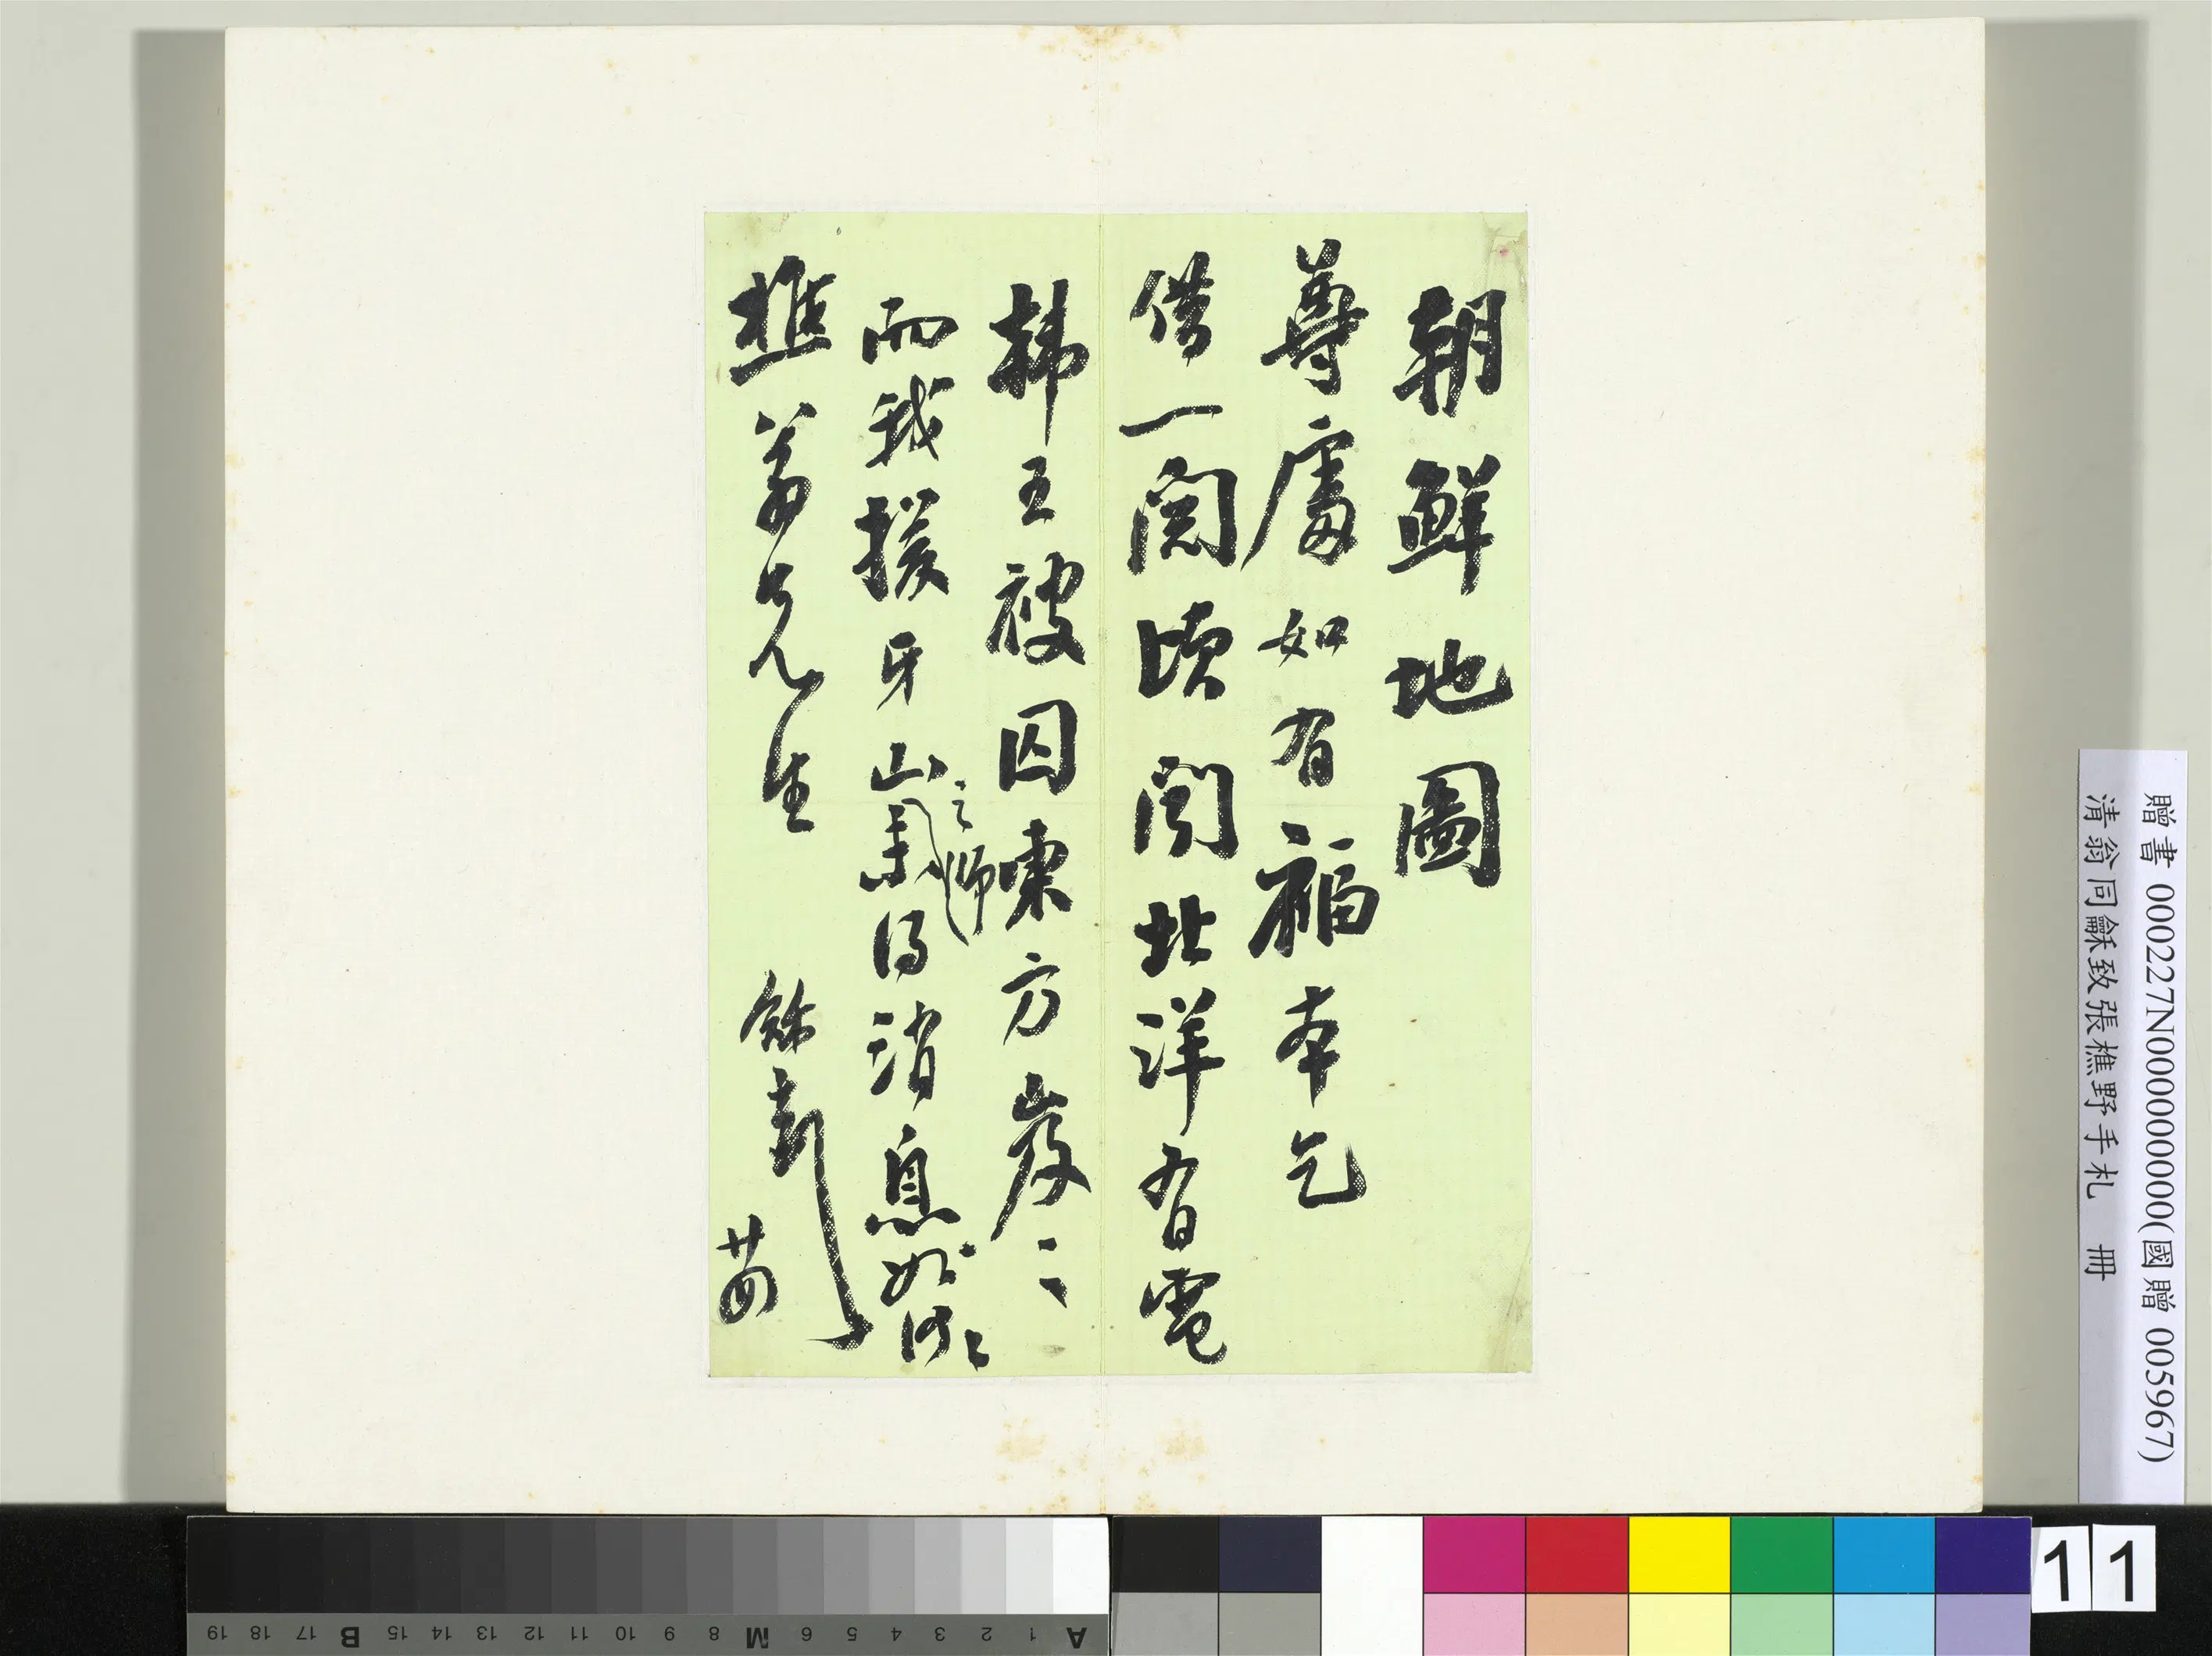 朝鮮地圖
尊處如有福本乞
借一閱頃聞北洋有電
韓王被囚東方岌〻
而我援牙山之師得消息如何〻
樵翁先生
廿四
贈書 000227N000000000(國贈 005967)
清翁同龢致張樵野手札 冊
A 1 2 3 4 5 6 M 8 9 10 11 12 13 14 15 B 17 18 19
11